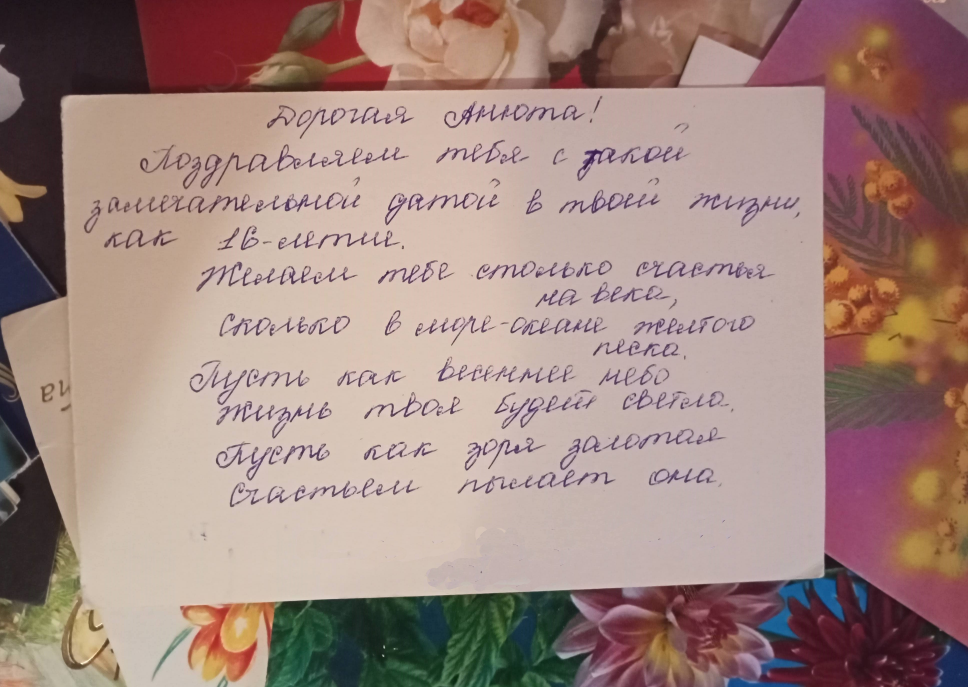 Дорогая Анюта!
Поздравляем тебя с такой
замечательной датой в твоей жизни,
как 16-летие.
Желаем тебе столько счастья
на века,
сколько в море-океане желтого
песка.
Пусть как весеннее небо
жизнь твоя будет светла.
Пусть как зоря залотая
счастьем пылает она.